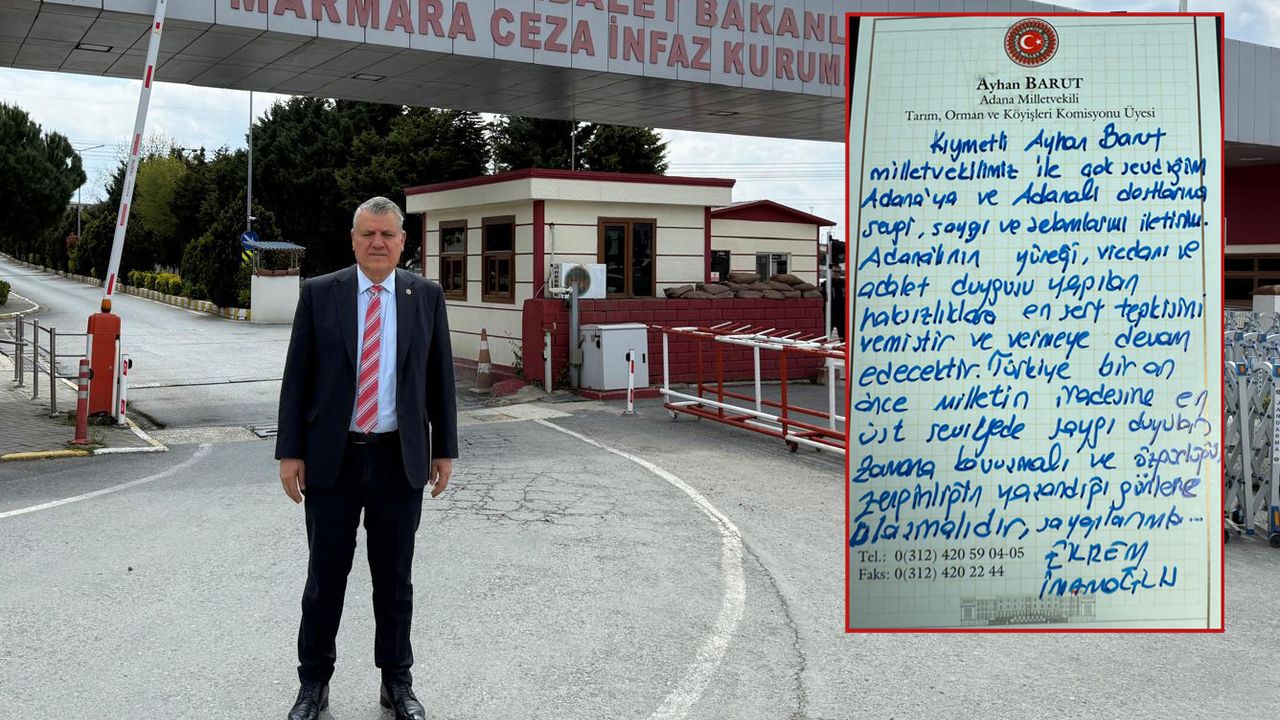 ADALET BAKANL
MARMARA CEZA İNFAZ KURUM
Ayhan BARUT
Adana Milletvekili
Tarım, Orman ve Köyişleri Komisyonu Üyesi
Kıymetli Ayhan Barut
milletvekilimiz ile çok sevdiğim
Adana'ya ve Adanalı dostlarıma
sevgi, saygı ve selamlarımı iletirim.
Adanalının yüreği, vicdanı ve
adalet duygusu yapılan
haksızlıklara en sert tepkisini
vermiştir ve vermeye devam
edecektir. Türkiye bir an
önce milletin iradesine en
üst seviyede saygı duyulan
zamana kavuşmalı ve özgürlüğün,
zenginliğin yaşandığı günlere
ulaşmalıdır, saygılarımla...
Tel.: 0(312) 420 59 04-05
Faks: 0(312) 420 22 44
EKREM
İMAMOĞLU